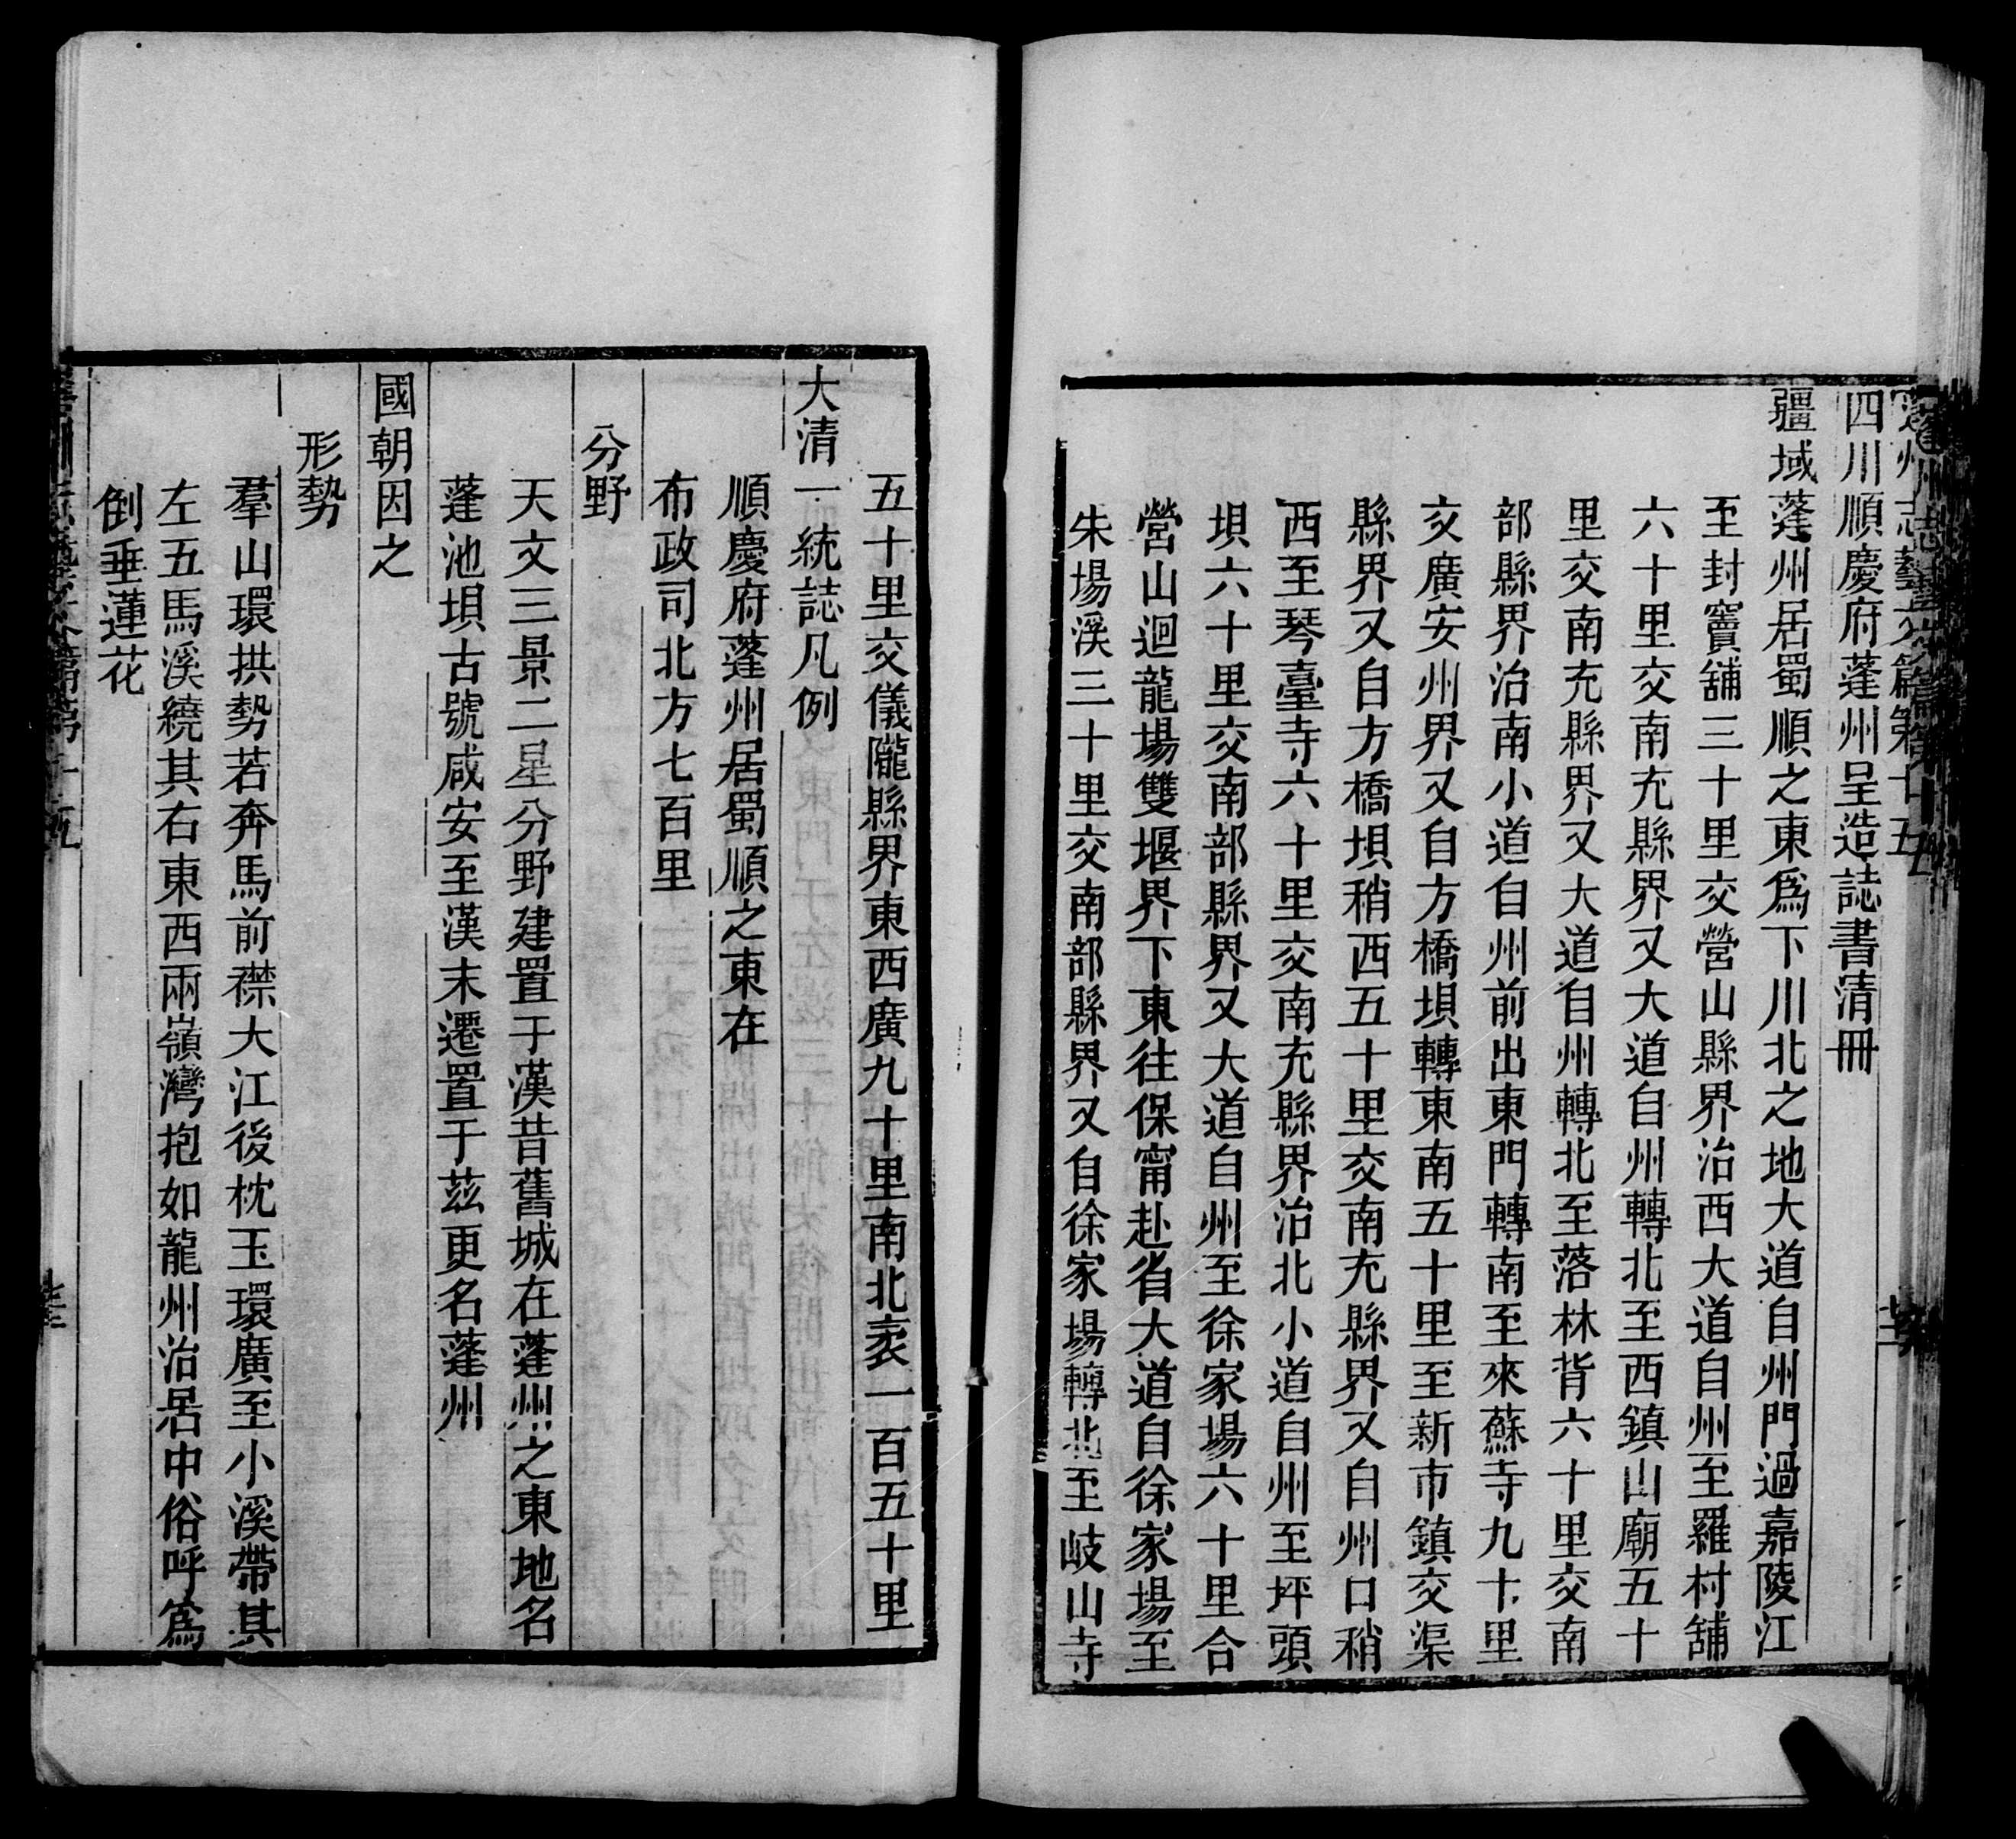 四川順慶府蓬州呈造誌書清冊
疆域蓬州居蜀順之東為下川北之地大道自州門過嘉陵江
至封竇舖三十里交營山縣界治西大道自州至羅村舖
六十里交南充縣界又大道自州轉北至西鎮山廟五十
里交南充縣界又大道自州轉北至落林背六十里交南
部縣界治南小道自州前出東門轉南至來蘇寺九十里
交廣安州界又自方橋垻轉東南五十里至新市鎮交渠
縣界又自方橋垻稍西五十里交南充縣界又自州口稍
西至琴臺寺六十里交南充縣界治北小道自州至坪頭
垻六十里交南部縣界又大道自州至徐家場六十里合
營山迴龍場雙堰界下東往保甯赴省大道自徐家場至
朱場溪三十里交南部縣界又自徐家場轉北至岐山寺
五十里交儀隴縣界東西廣九十里南北袤一百五十里
大清一統誌凡例
順慶府蓬州居蜀順之東在
布政司北方七百里
分野
天文三景二星分野建置于漢昔舊城在蓬州之東地名
蓬池垻古號咸安至漢末遷置于茲更名蓬州
國朝因之
形勢
羣山環拱勢若奔馬前襟大江後枕玉環廣至小溪帶其
左五馬溪繞其右東西兩嶺灣抱如龍州治居中俗呼為
倒垂蓮花